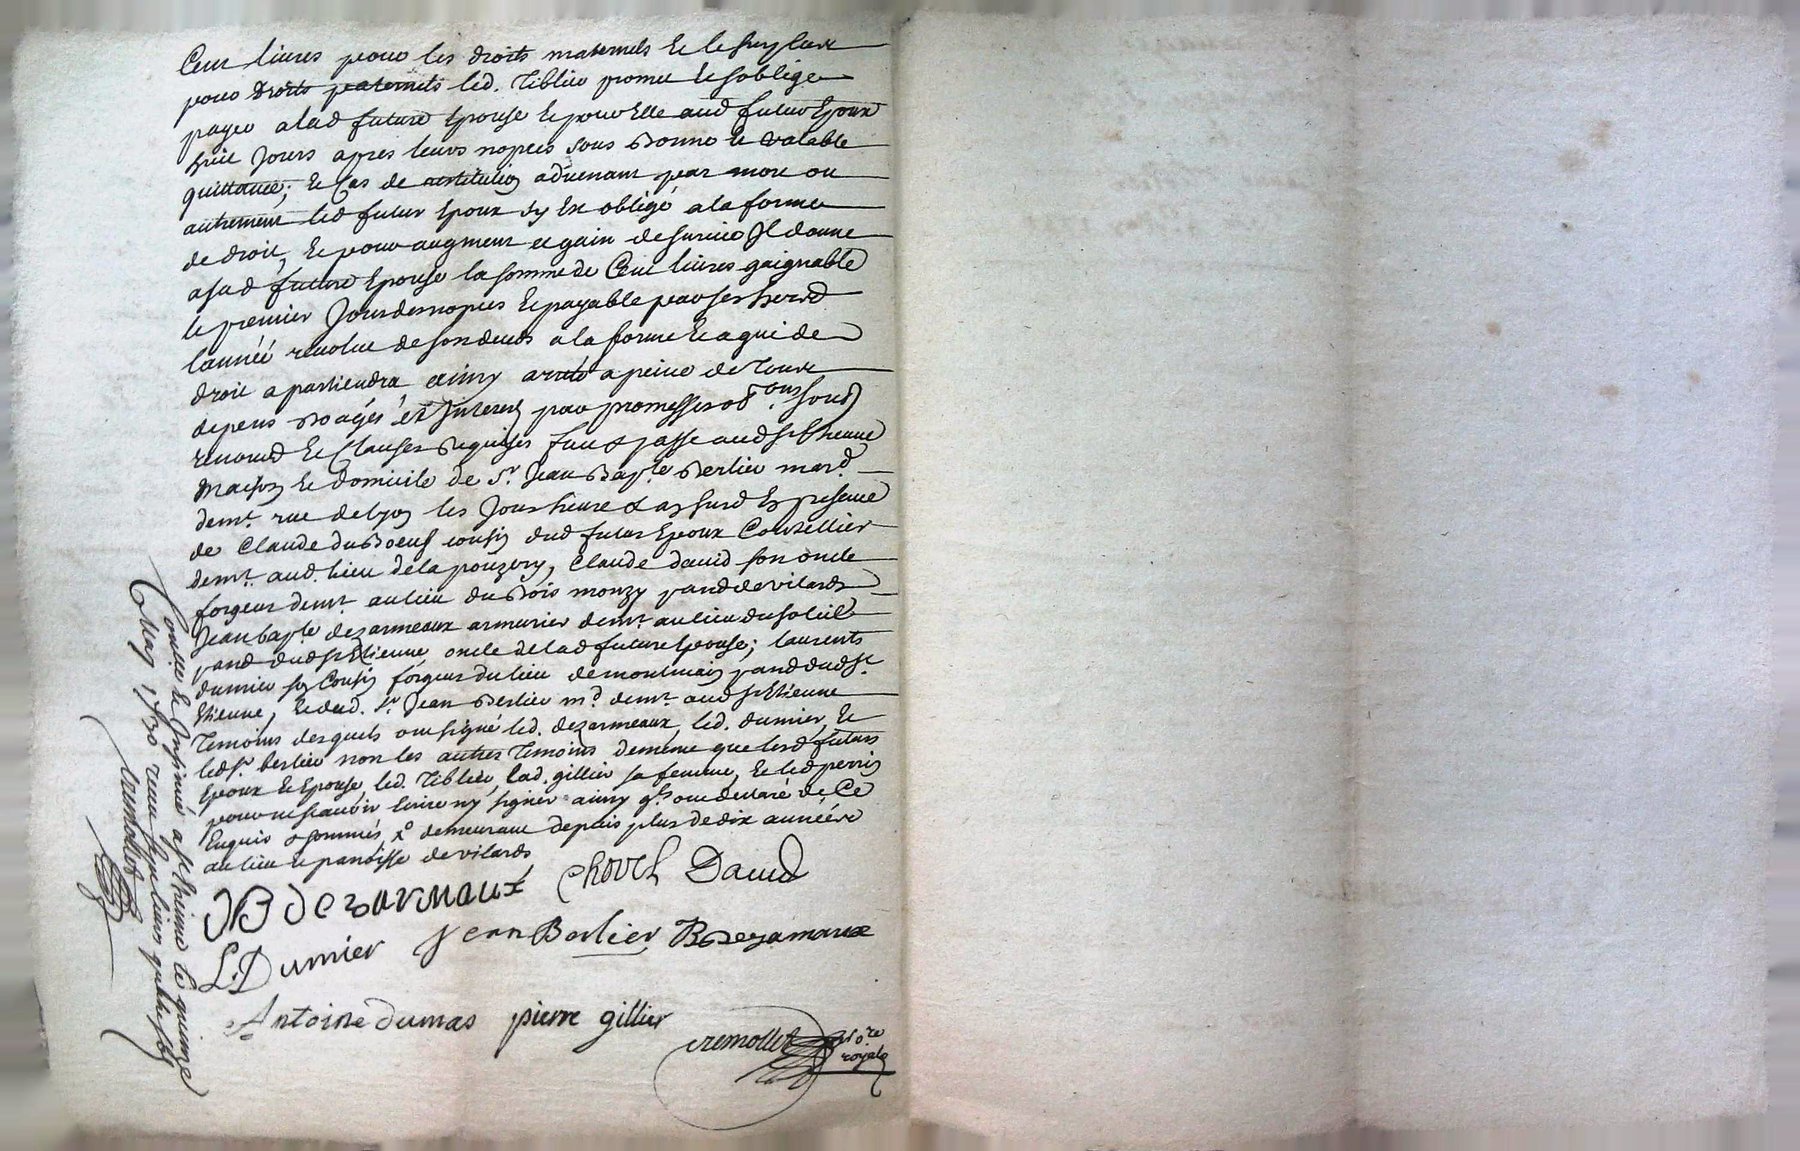 Cent livres pour les droits maternels et le surplus
pour droits paternels led. Tiblier promet et soblige
payer a lad future Epouse et pour Elle aud futur Epoux
huit Jours apres leurs nopces sous bonne et valable
quittance; et Cas de restitution advenant par mort ou
autrement led futur Epoux sy Est obligé a la forme
de droit, et pour augment et gain de survie Il donne
a sad future Epouse la somme de Cent livres gaignable
le premier Jour des nopces et payable par ses heres
lannéé revolue de son deuds a la forme et a qui de
droit apartiendra ainsy areté a peine de tous
depens domages et Interests par promesses obons soubs
renonons et Clauses Requises fait & passe aud St Etienne
Maison et domicile de Sr. Jean Bapte Berlier mard.
demt. rue de lyon les Jour heure & an susd En presence
de Claude duBoeuf cousin dud futur Epoux Coutellier
demt. aud. lieu de la pouzery, Claude david son oncle
forgeur demt. au lieu du Bois monzy pand de vilards
Jean bapte dezarmeaux armurier demt. au lieu du soleil
pand dud St Etienne oncle de lad future Epouse; laurents
dumier son Cousin forgeur du lieu de pand dud St.
Etienne, et dud. Sr. Jean Berlier md. demt. aud St Etienne
temoins desquels ont signé led. dezarmeaux, led. dumier, et
led Sr. berlier non les autres temoins de meme que lesd futurs
Epoux et Epouse, led. Tiblier, lad. gillier sa femme, et led perrin
pour ne scavoir Ecrire ny signer ainsy qls ont declaré de Ce
Enquis & sommés, xo demeurant depuis plus de dix annéés
au lieu et paroisse de vilards
JB Dezarmaux Chovel David
L. Dumier Jean Berlier Dezamaux
Antoine dumas pierre gillier
cremollet nore
royal
Conllé et Insinué a St Etienne le quinze
May 1730 receu livres quatre sols
cremollet